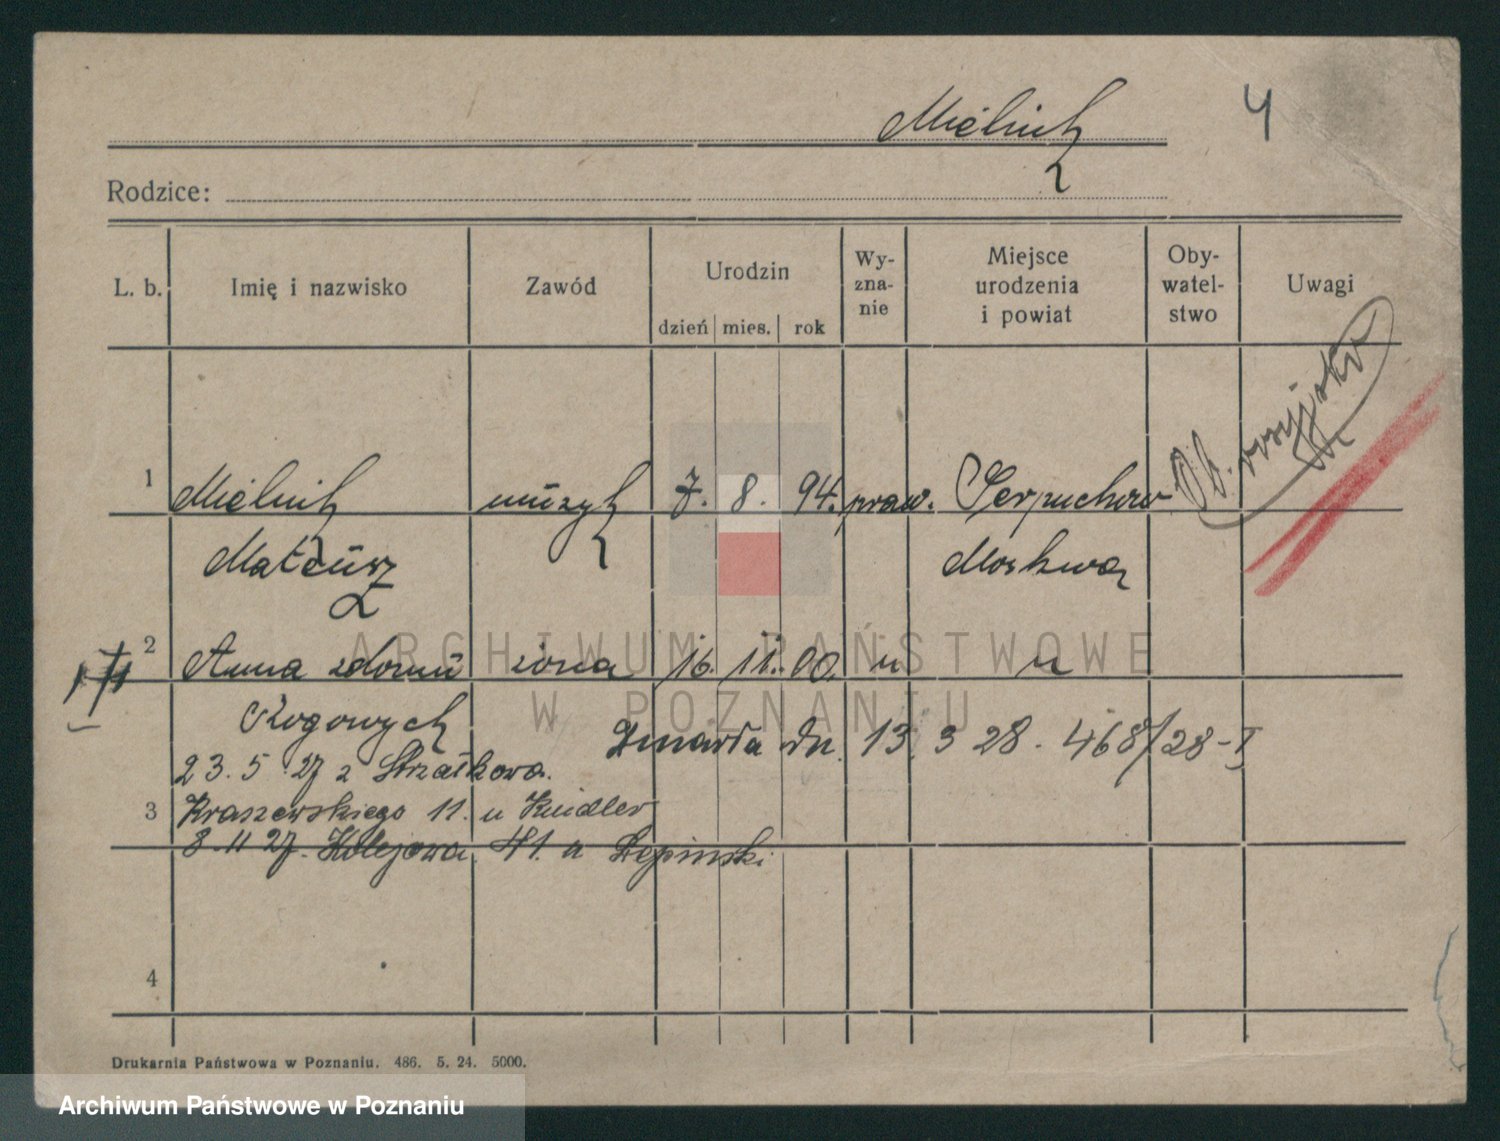 Mielnik
4
Rodzice:
L. b.
Imię i nazwisko
Zawód
Urodzin
dzień mies. rok
Wy-
zna-
nie
Miejsce
urodzenia
i powiat
Oby-
watel-
stwo
Uwagi
1 Mielnik muzyk 7. 8. 94. praw. Serpuchow Ob. rosyjsko
Mateusz Moskwa
2 Anna zdomu żona 16. 11. 00. " "
Rogowych
Zmarła dn. 13 3 28. 468/28-I
23. 5 27 z Strzałkowa.
3 Kraszewskiego 11. u Knidler
8. 11 27. Kolejowa 41. u Łepinski
4
Drukarnia Państwowa w Poznaniu. 486. 5. 24. 5000.
ARCHIWUM PAŃSTWOWE
W POZNANIU
Archiwum Państwowe w Poznaniu